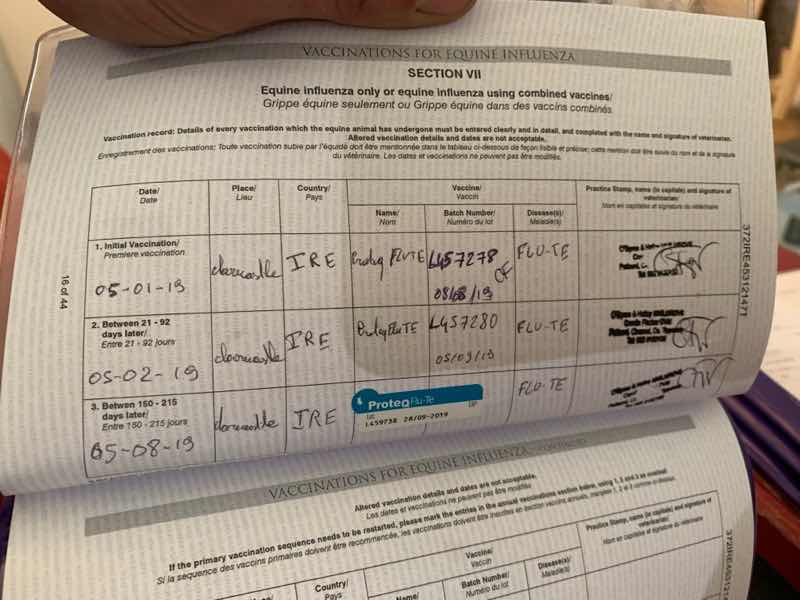 VACCINATIONS FOR EQUINE INFLUENZA
SECTION VII
Equine influenza only or equine influenza using combined vaccines/
Grippe équine seulement ou Grippe équine dans des vaccins combinés.
Vaccination record: Details of every vaccination which the equine animal has undergone must be entered clearly and in detail, and completed with the name and signature of veterinarian.
Altered vaccination details and dates are not acceptable.
Enregistrement des vaccinations: Toute vaccination subie par l'équidé doit être mentionnée dans le tableau ci-dessous de façon lisible et précise; cette mention doit être suivie du nom et de la signature
du vétérinaire. Les dates et vaccinations ne peuvent pas être modifiés.
Date/
Date
Place/
Lieu
Country/
Pays
Vaccine/
Vaccin
Practice Stamp, name (in capitals) and signature of
veterinarian/
Nom en capitales et signature du vétérinaire
Name/
Nom
Batch Number/
Numéro du lot
Disease(s)/
Maladie(s)
1. Initial Vaccination/
Premiere vaccination
05-01-19
IRE
FLUTE
L457278
08/08/19
FLU-TE
2. Between 21 - 92
days later/
Entre 21 - 92 jours
05-02-19
IRE
FluTE
L457280
05/09/19
FLU-TE
3. Betwen 150 - 215
days later/
Entre 150 - 215 jours
05-08-19
IRE
ProteqFlu-Te
L459738 28/09/2019
FLU-TE
16 of 44
372IRE453121471
VACCINATIONS FOR EQUINE INFLUENZA
Altered vaccination details and dates are not acceptable.
Les dates et vaccinations ne peuvent pas être modifiés
If the primary vaccination sequence needs to be restarted, please mark the entries in the annual vaccinations section below, using 1, 2 and 3 as needed
Si la séquence des vaccins primaires doivent être recommencée, les vaccinations doivent être
Practice Stamp, name (in capitals) and signature of
veterinarian/
Nom en capitales et signature du vétérinaire
Vaccine/
Vaccin
Country/
Pays
Name/
Batch Number/
Numéro du lot
Disease(s)/
Maladie(s)